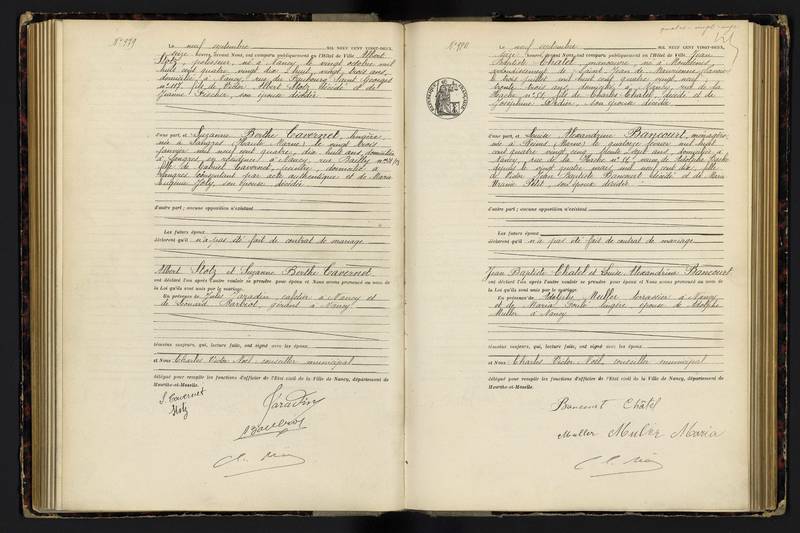 N° 989
Le neuf septembre MIL NEUF CENT VINGT-DEUX,
seize heures, devant Nous, ont comparu publiquement en l'Hôtel de Ville Albert
Stotz, polisseur, né à Nancy, le vingt octobre mil
huit cent quatre vingt dix huit, vingt trois ans,
domicilié à Nancy, rue du Faubourg Saint Georges
n° 117, fils de Victor Albert Stotz décédé et de
Jeanne Fischer, son épouse décédée
d'une part, et Suzanne Berthe Cavernet, lingère,
née à Langres (Haute Marne) le vingt trois
janvier mil neuf cent quatre, dix huit ans, domiciliée
à Langres, en résidence à Nancy rue Bailly
fille de Gabriel Cavernet, domicilié à
Langres consentant par acte authentique et de Marie
Eugénie Joly, son épouse décédée
d'autre part; aucune opposition n'existant
Les futurs époux
déclarent qu'il n'a pas été fait de contrat de mariage
Albert Stotz et Suzanne Berthe Cavernet
ont déclaré l'un après l'autre vouloir se prendre pour époux et Nous avons prononcé au nom de
la Loi qu'ils sont unis par le mariage.
En présence de Jules cafetier à Nancy et
de gérant à Nancy
témoins majeurs, qui, lecture faite, ont signé avec les époux
et Nous Charles Victor Noël, conseiller municipal
délégué pour remplir les fonctions d'officier de l'Etat civil de la Ville de Nancy, département de
Meurthe-et-Moselle.
S. Cavernet
Stotz
N° 990
Le neuf septembre MIL NEUF CENT VINGT-DEUX,
seize heures, devant Nous, ont comparu publiquement en l'Hôtel de Ville Jean
Baptiste Chatel, manoeuvre, né à
arrondissement de Saint Jean de Maurienne (Savoie)
le trois juillet mil huit cent quatre vingt neuf
trente trois ans, domicilié à Nancy, rue de la
Hache n° 51, fils de Charles Chatel, décédé et de
Joséphine son épouse décédée
d'une part, et Louise Alexandrine Bancourt, ménagère,
née à Reims (Marne) le quatorze février mil huit
cent quatre vingt cinq, trente sept ans, domiciliée à
Nancy, rue de la Hache n° 51, veuve de
depuis le vingt quatre mil neuf cent dix, fille
de Victor Jean Baptiste Bancourt décédé et de Marie
Petit, son épouse décédée
d'autre part; aucune opposition n'existant
Les futurs époux
déclarent qu'il n'a pas été fait de contrat de mariage
Jean Baptiste Chatel et Louise Alexandrine Bancourt
ont déclaré l'un après l'autre vouloir se prendre pour époux et Nous avons prononcé au nom de
la Loi qu'ils sont unis par le mariage.
En présence de Adolphe Muller, terrassier à Nancy
et de Maria lingère épouse de Adolphe
Muller à Nancy
témoins majeurs, qui, lecture faite, ont signé avec les époux
et Nous Charles Victor Noël, conseiller municipal
délégué pour remplir les fonctions d'officier de l'Etat civil de la Ville de Nancy, département de
Meurthe-et-Moselle.
Bancourt Châtel
Muller Muller Maria